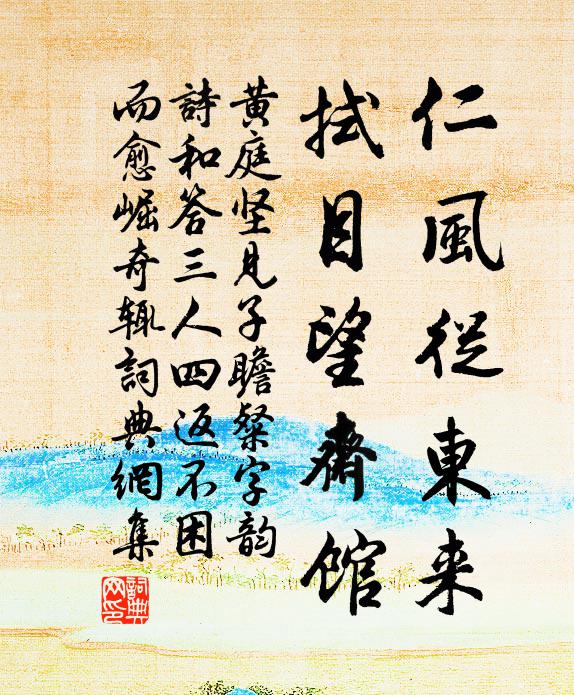 仁風從東来
拭目望齋館
黄庭坚見子瞻粲字韵
詩和答三人四返不困
而愈崛奇輒詞典網集
詞典